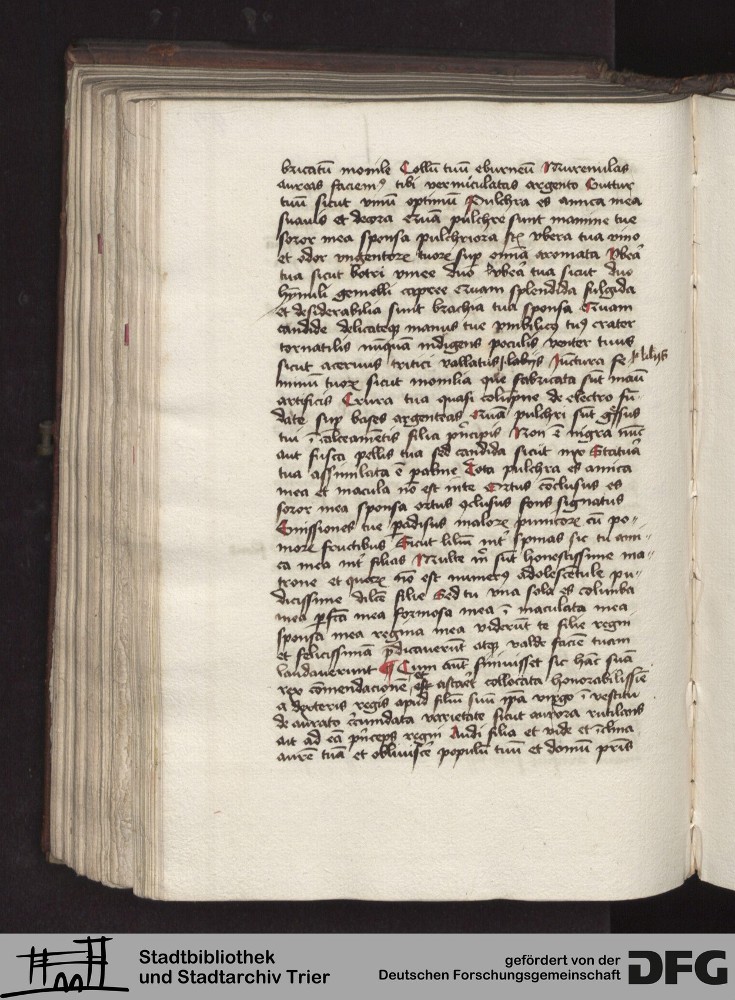 bricatū monile Collū tuū eburneū Murenulas
aureas faciemꝰ tibi vermiculatas argento Guttur
tuū sicut vinū optimū Pulchra es amica mea
suauis et decora Quā pulchre sunt mamme tue
soror mea sponsa pulchriora sūt vbera tua vino
et odor vngentorꝝ tuorꝝ sup omīa aromata Vbera
tua sicut botri vinee Duo vbera tua sicut duo
hynnuli gemelli capree Quam splendida fulgida
et desiderabilia sunt brachia tua sponsa Quam
candide delicateqꝫ manus tue Vmbilicꝰ tuꝰ crater
tornatilis nūquam indigens poculis venter tuus
sicut aceruus tritici vallatus labijs Iūctura fe
lilijs
minū tuorꝝ sicut monilia que fabricata sūt manu
artificis Crura tua quasi colūpne de electro fū
date sup bases argenteas Quā pulchri sūt gressus
tui ī calceamētis filia prīcipis Non ē nigra nūc
aut fusca pellis tua sed candida sicut nix Statura
tua assimilata ē palme Tota pulchra es amica
mea et macula nō est in te Ortus cōclusus es
soror mea sponsa ortus ꝯclusus fons signatus
Emissiones tue padisus malorꝝ punicorꝝ cū po
morꝝ fructibus Sicut liliū int spinas sic tu ami
ca mea int filias Multe m̄ sūt honestissime ma
trone et quorꝝ nō est numerꝰ adolescētule pu
dicissime dilcē filie Sed tu vna sola es columba
mea pfcā mea formosa mea ī maculata mea
sponsa mea regina mea viderūt te filie regni
et felicissimā p̄dicauerūt atqꝫ valde faciē tuam
laudauerunt Cum aūt finiuisset sic hāc suā
rex cōmendacionē et astaret collocata honorabilissīe
a dexteris regis apud filiū suū ipa virgo ī vestitu
de aurato circūdata varietate sicut aurora rutilans
ait ad eā prīceps regni Audi filia et vide et īclina
aurē tuā et obliuiscē populū tuū et domū pris
Stadtbibliothek
und Stadtarchiv Trier
gefördert von der
Deutschen Forschungsgemeinschaft
DFG